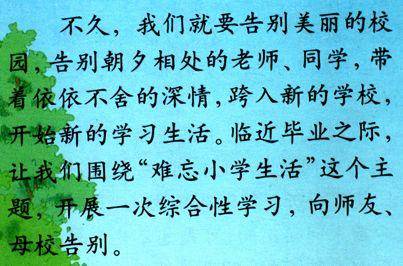 不久，我们就要告别美丽的校
园，告别朝夕相处的老师、同学，带
着依依不舍的深情，跨入新的学校，
开始新的学习生活。临近毕业之际，
让我们围绕“难忘小学生活”这个主
题，开展一次综合性学习，向师友、
母校告别。